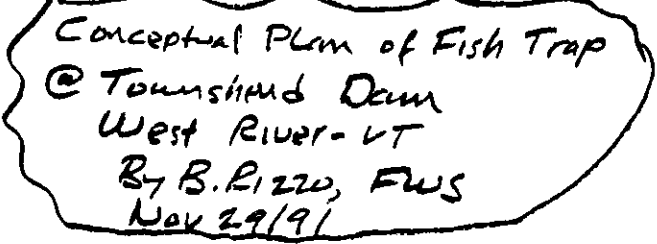 Conceptual Plan of Fish Trap
@ Townshend Dam
West River - VT
By B. Rizzo, FWS
Nov 29/91